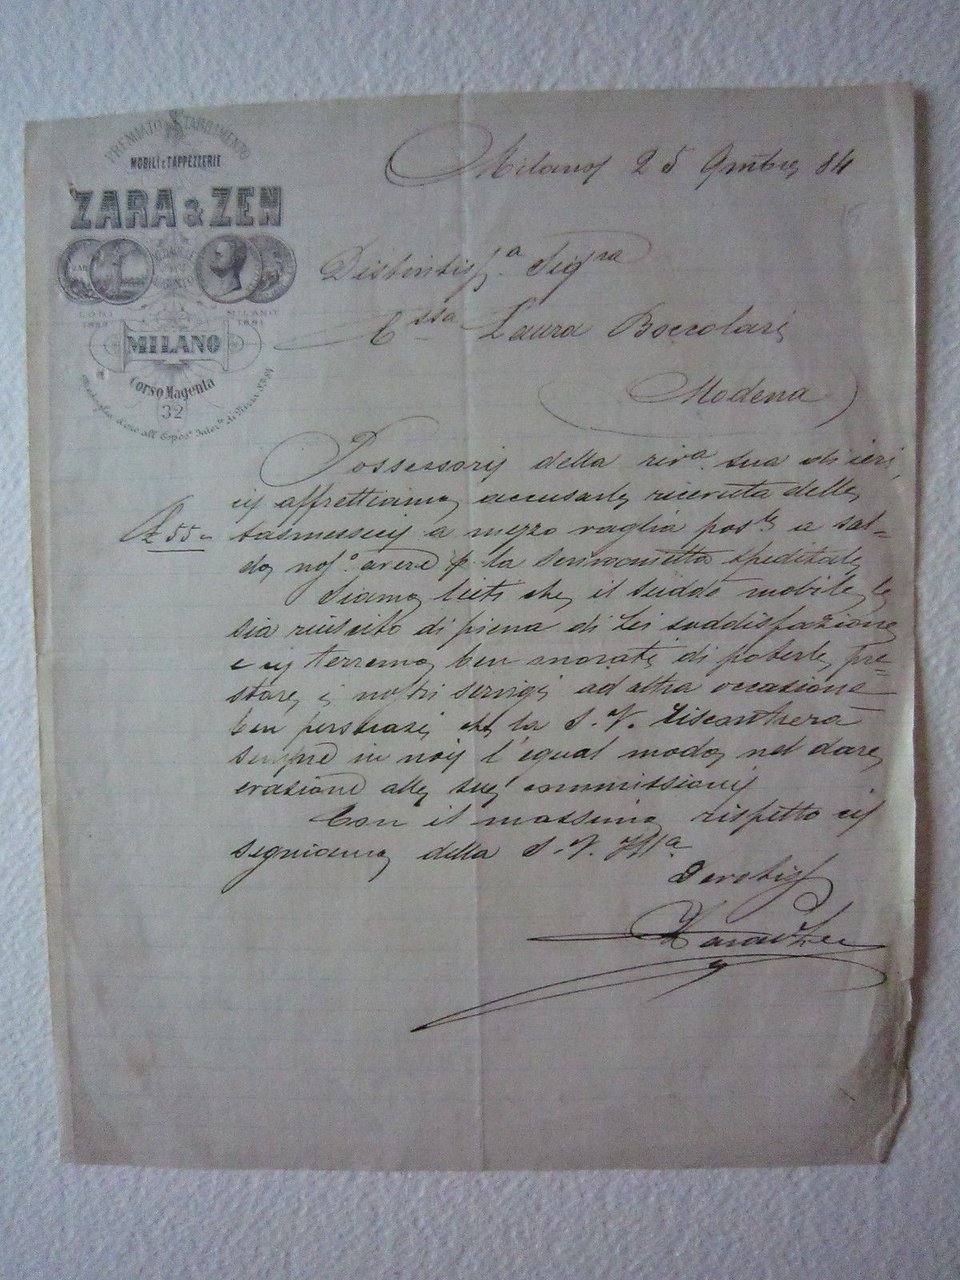 PREMIATO STABILIMENTO
MOBILI e TAPPEZZERIE
ZARA & ZEN
LODI
MILANO
1881
MILANO
Corso Magenta
32
Milano 25 9mbre 84
Distintiss.a Sigra
C.ssa Laura Boccolari
Modena
Possessori della riv.a sua di ieri,
ci affrettiamo accusarle ricevuta delle
£ 55 = trasmesseci a mezzo vaglia post.le a sal-
do ns.o avere p la servonietta speditale
Siamo lieti che il sudd.o mobile le
sia riuscito di piena di Lei suddisfazione
e ci terremo ben onorati di poterle pre=
stare i nostri servigi ad altra occasione
ben persuasi che la S. V. riscontrerà
sempre in noi l'egual modo nel dare
evasione alle sue commissioni
Con il massimo rispetto ci
segniamo della S. V. Ill.a
Devotiss
Zara & Zen